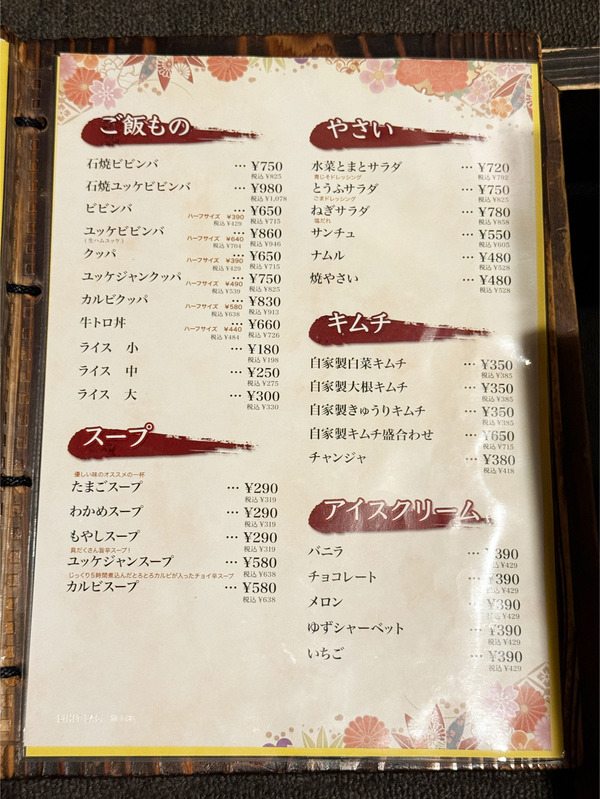 ご飯もの
石焼ビビンバ … ¥750
税込 ¥825
石焼ユッケビビンバ … ¥980
税込 ¥1,078
ビビンバ … ¥650
ハーフサイズ ¥390
税込 ¥429 税込 ¥715
ユッケビビンバ … ¥860
(生ハムユッケ) ハーフサイズ ¥640
税込 ¥704 税込 ¥946
クッパ … ¥650
ハーフサイズ ¥390
税込 ¥429 税込 ¥715
ユッケジャンクッパ … ¥750
ハーフサイズ ¥490
税込 ¥539 税込 ¥825
カルビクッパ … ¥830
ハーフサイズ ¥580
税込 ¥638 税込 ¥913
牛トロ丼 … ¥660
ハーフサイズ ¥440
税込 ¥484 税込 ¥726
ライス 小 … ¥180
税込 ¥198
ライス 中 … ¥250
税込 ¥275
ライス 大 … ¥300
税込 ¥330
スープ
優しい味のオススメの一杯
たまごスープ … ¥290
税込 ¥319
わかめスープ … ¥290
税込 ¥319
もやしスープ … ¥290
税込 ¥319
具だくさん旨辛スープ!
ユッケジャンスープ … ¥580
税込 ¥638
じっくり5時間煮込んだとろとろカルビが入ったチョイ辛スープ
カルビスープ … ¥580
税込 ¥638
やさい
水菜とまとサラダ … ¥720
青じそドレッシング 税込 ¥792
とうふサラダ … ¥750
ごまドレッシング 税込 ¥825
ねぎサラダ … ¥780
塩だれ 税込 ¥858
サンチュ … ¥550
税込 ¥605
ナムル … ¥480
税込 ¥528
焼やさい … ¥480
税込 ¥528
キムチ
自家製白菜キムチ … ¥350
税込 ¥385
自家製大根キムチ … ¥350
税込 ¥385
自家製きゅうりキムチ … ¥350
税込 ¥385
自家製キムチ盛合わせ … ¥650
税込 ¥715
チャンジャ … ¥380
税込 ¥418
アイスクリーム
バニラ … ¥390
税込 ¥429
チョコレート … ¥390
税込 ¥429
メロン … ¥390
税込 ¥429
ゆずシャーベット … ¥390
税込 ¥429
いちご … ¥390
税込 ¥429